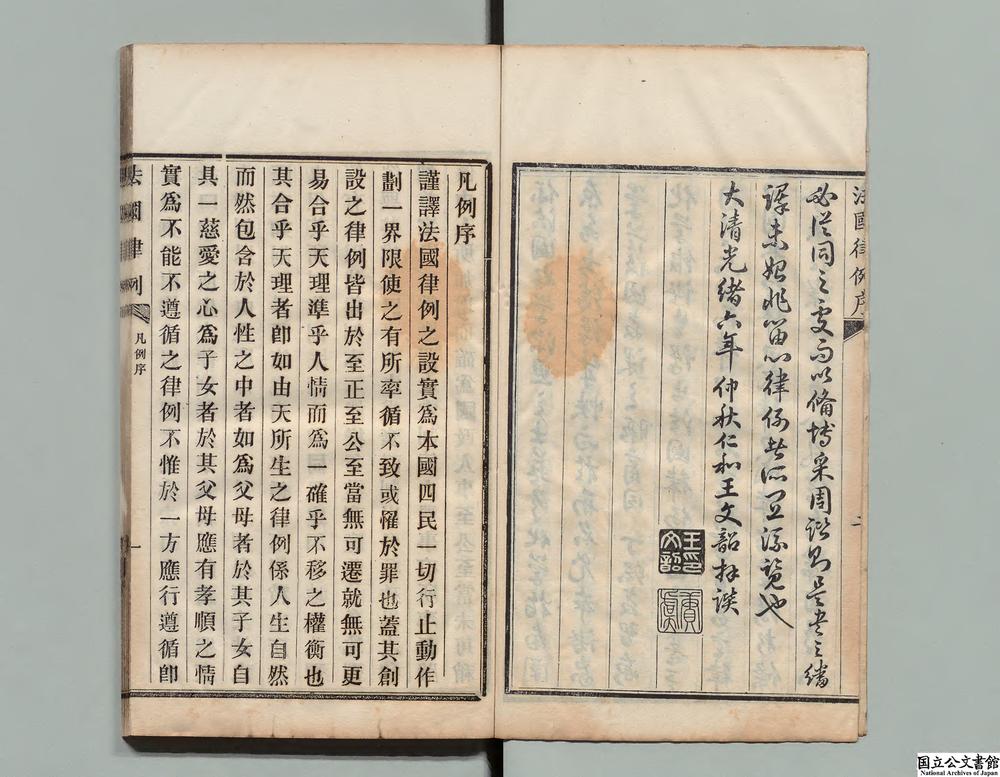 法國律例序
必從同之更而以備博采周諮則是書之繙
譯未始非留心律例者所宜流覽也
大清光緒六年仲秋仁和王文韶拜譔
二
王文韶印
凡例序
謹譯法國律例之設實為本國四民一切行止動作
劃一界限使之有所率循不致或罹於罪也蓋其創
設之律例皆出於至正至公至當無可遷就無可更
易合乎天理準乎人情而為一確乎不移之權衡也
其合乎天理者卽如由天所生之律例係人生自然
而然包含於人性之中者如為父母者於其子女自
具一慈愛之心為子女者於其父母應有孝順之情
實為不能不遵循之律例不惟於一方應行遵循卽
法國律例
凡例序
一
国立公文書館
National Archives of Japan